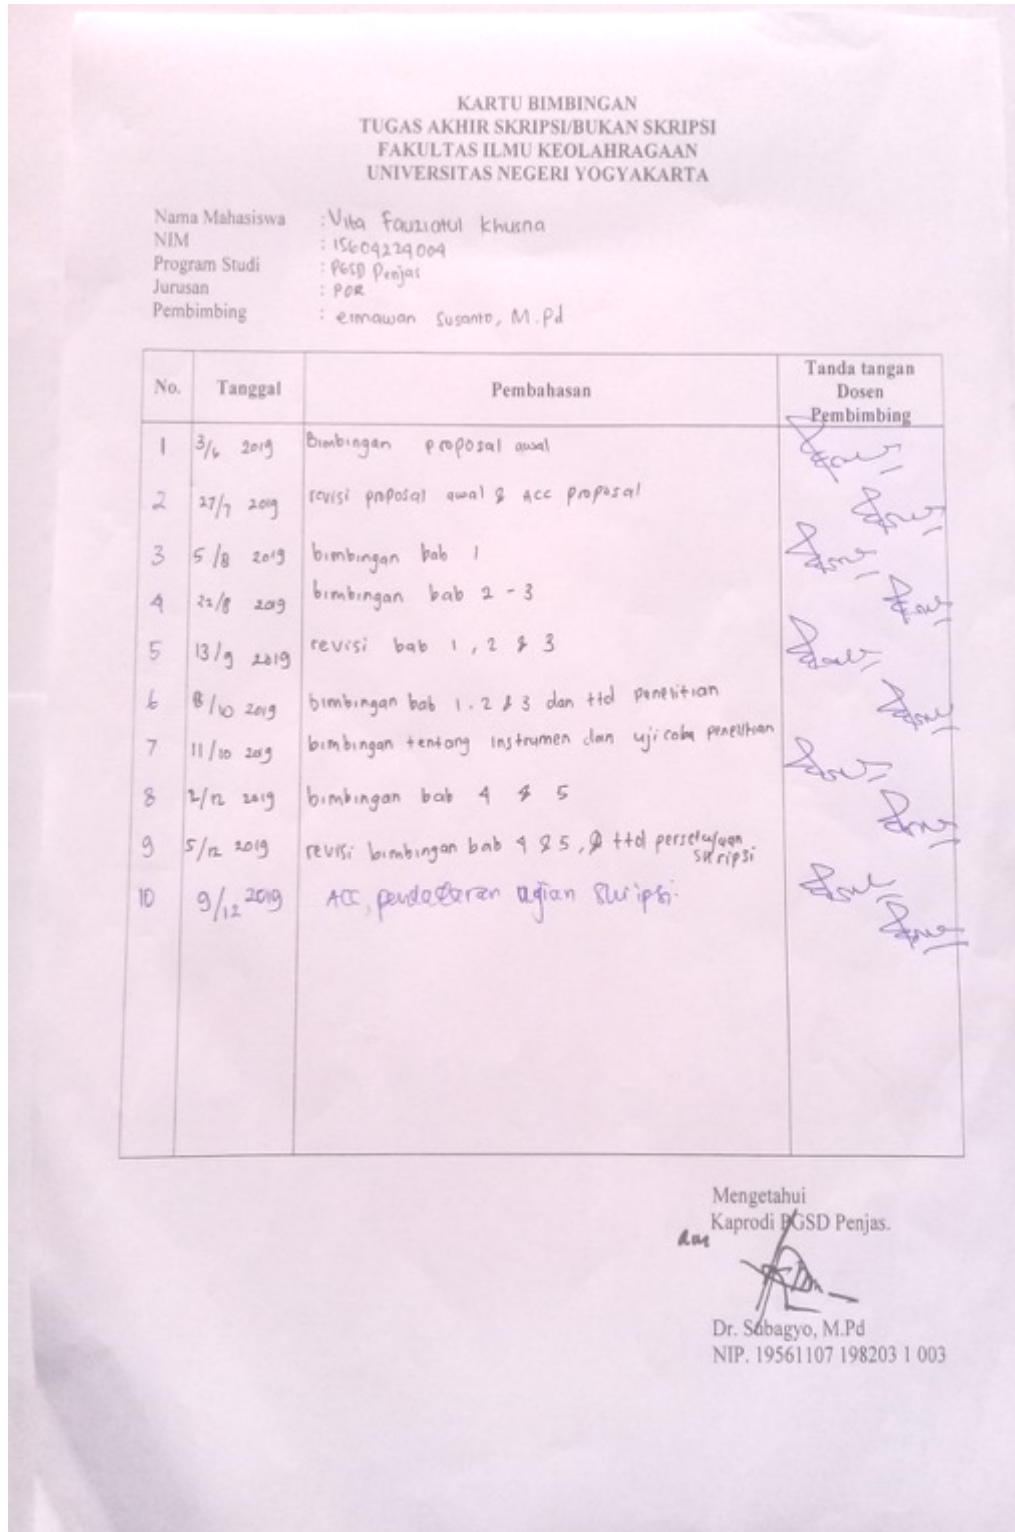 KARTU BIMBINGAN
TUGAS AKHIR SKRIPSI/BUKAN SKRIPSI
FAKULTAS ILMU KEOLAHRAGAAN
UNIVERSITAS NEGERI YOGYAKARTA
Nama Mahasiswa : Vita Fauziatul Khusna
NIM : 15604224009
Program Studi : PGSD Penjas
Jurusan : POR
Pembimbing : ermawan Susanto, M.Pd
No. Tanggal Pembahasan Tanda tangan Dosen Pembimbing
1 3/6 2019 Bimbingan proposal awal
2 27/7 2019 revisi proposal awal & ACC proposal
3 5/8 2019 bimbingan bab 1
4 22/8 2019 bimbingan bab 2 - 3
5 13/9 2019 revisi bab 1, 2 & 3
6 8/10 2019 bimbingan bab 1. 2 & 3 dan ttd penelitian
7 11/10 2019 bimbingan tentang instrumen dan uji coba penelitian
8 2/12 2019 bimbingan bab 4 & 5
9 5/12 2019 revisi bimbingan bab 4 & 5, & ttd persetujuan skripsi
10 9/12 2019 ACC, pendaftaran ujian skripsi.
Mengetahui
Kaprodi PGSD Penjas.
Dr. Subagyo, M.Pd
NIP. 19561107 198203 1 003